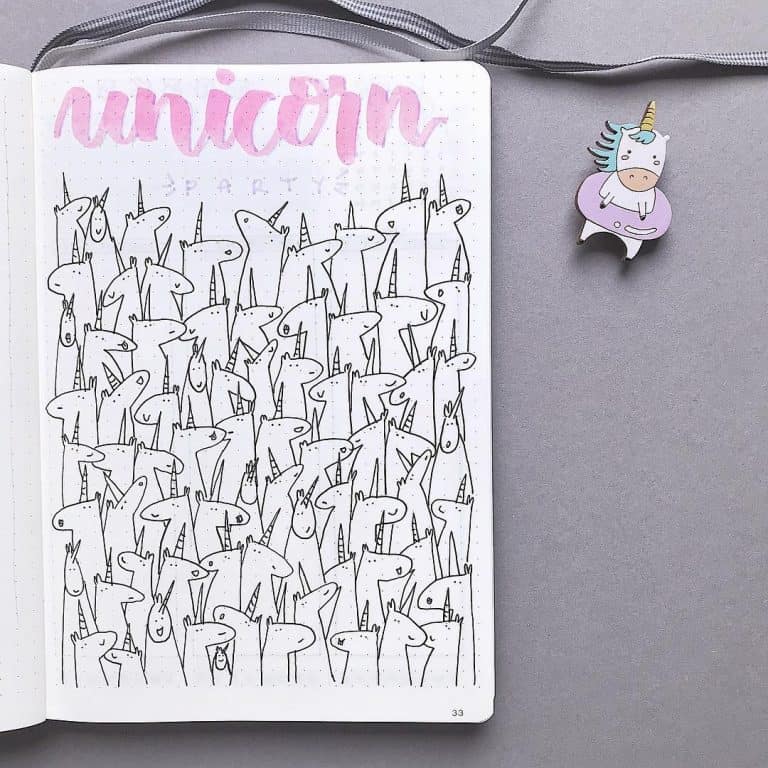 unicorn
PARTY
33